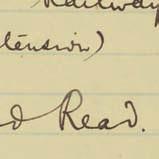 Railway
tension)
d Read.